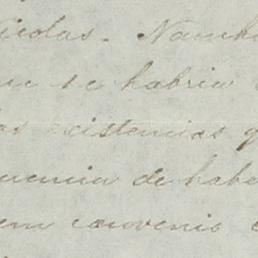 Nicolas. Nomb
que se habria
las existencias q
uencia de habe
em convenio e